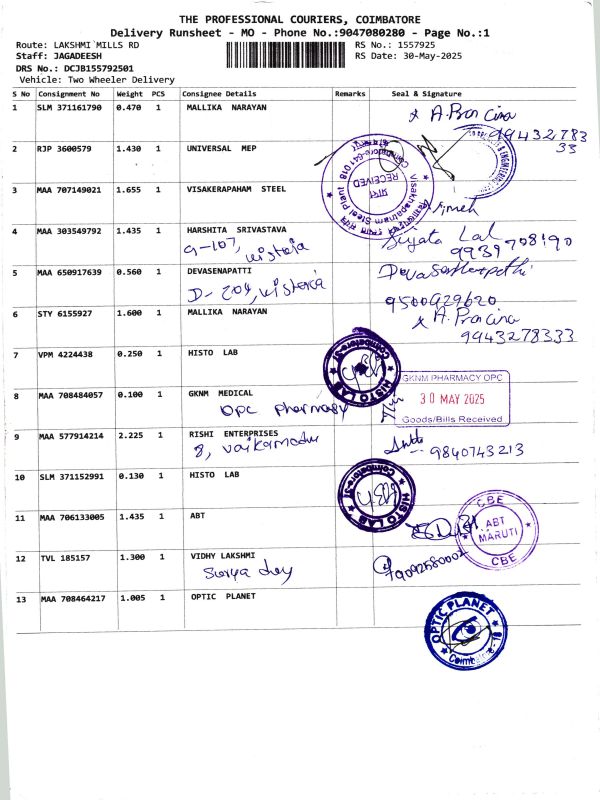 THE PROFESSIONAL COURIERS, COIMBATORE
Delivery Runsheet - MO - Phone No.:9047080280 - Page No.:1
Route: LAKSHMI MILLS RD
RS No.: 1557925
Staff: JAGADEESH
RS Date: 30-May-2025
DRS No.: DCJB155792501
Vehicle: Two Wheeler Delivery
S No Consignment No Weight PCS Consignee Details Remarks Seal & Signature
1 SLM 371161790 0.470 1 MALLIKA NARAYAN
99432783
33
2 RJP 3600579 1.430 1 UNIVERSAL MEP
Visakhapatnam Steel Plant
Coimbatore-641 018
RECEIVED
3 MAA 707149021 1.655 1 VISAKERAPAHAM STEEL
4 MAA 303549792 1.435 1 HARSHITA SRIVASTAVA
G-107, wisteria
Sujata Lal
9939708190
5 MAA 650917639 0.560 1 DEVASENAPATTI
D-204, wisteria
9500929620
6 STY 6155927 1.600 1 MALLIKA NARAYAN
9943278333
7 VPM 4224438 0.250 1 HISTO LAB
HISTO LAB
8 MAA 708484057 0.100 1 GKNM MEDICAL
OPC Pharmasy
GKNM PHARMACY OPC
30 MAY 2025
Goods/Bills Received
9 MAA 577914214 2.225 1 RISHI ENTERPRISES
9840743213
10 SLM 371152991 0.130 1 HISTO LAB
HISTO LAB
11 MAA 706133005 1.435 1 ABT
CBE
ABT
MARUTI
CBE
12 TVL 185157 1.300 1 VIDHY LAKSHMI
13 MAA 708464217 1.005 1 OPTIC PLANET
OPTIC PLANET